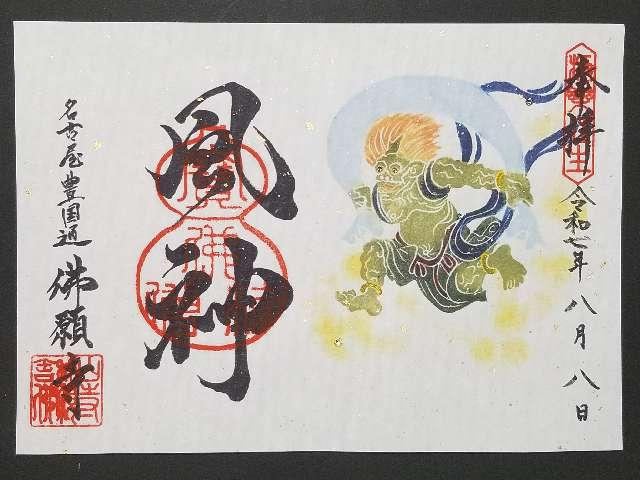 奉拝
令和七年八月八日
風神
名古屋豊国通 佛願寺